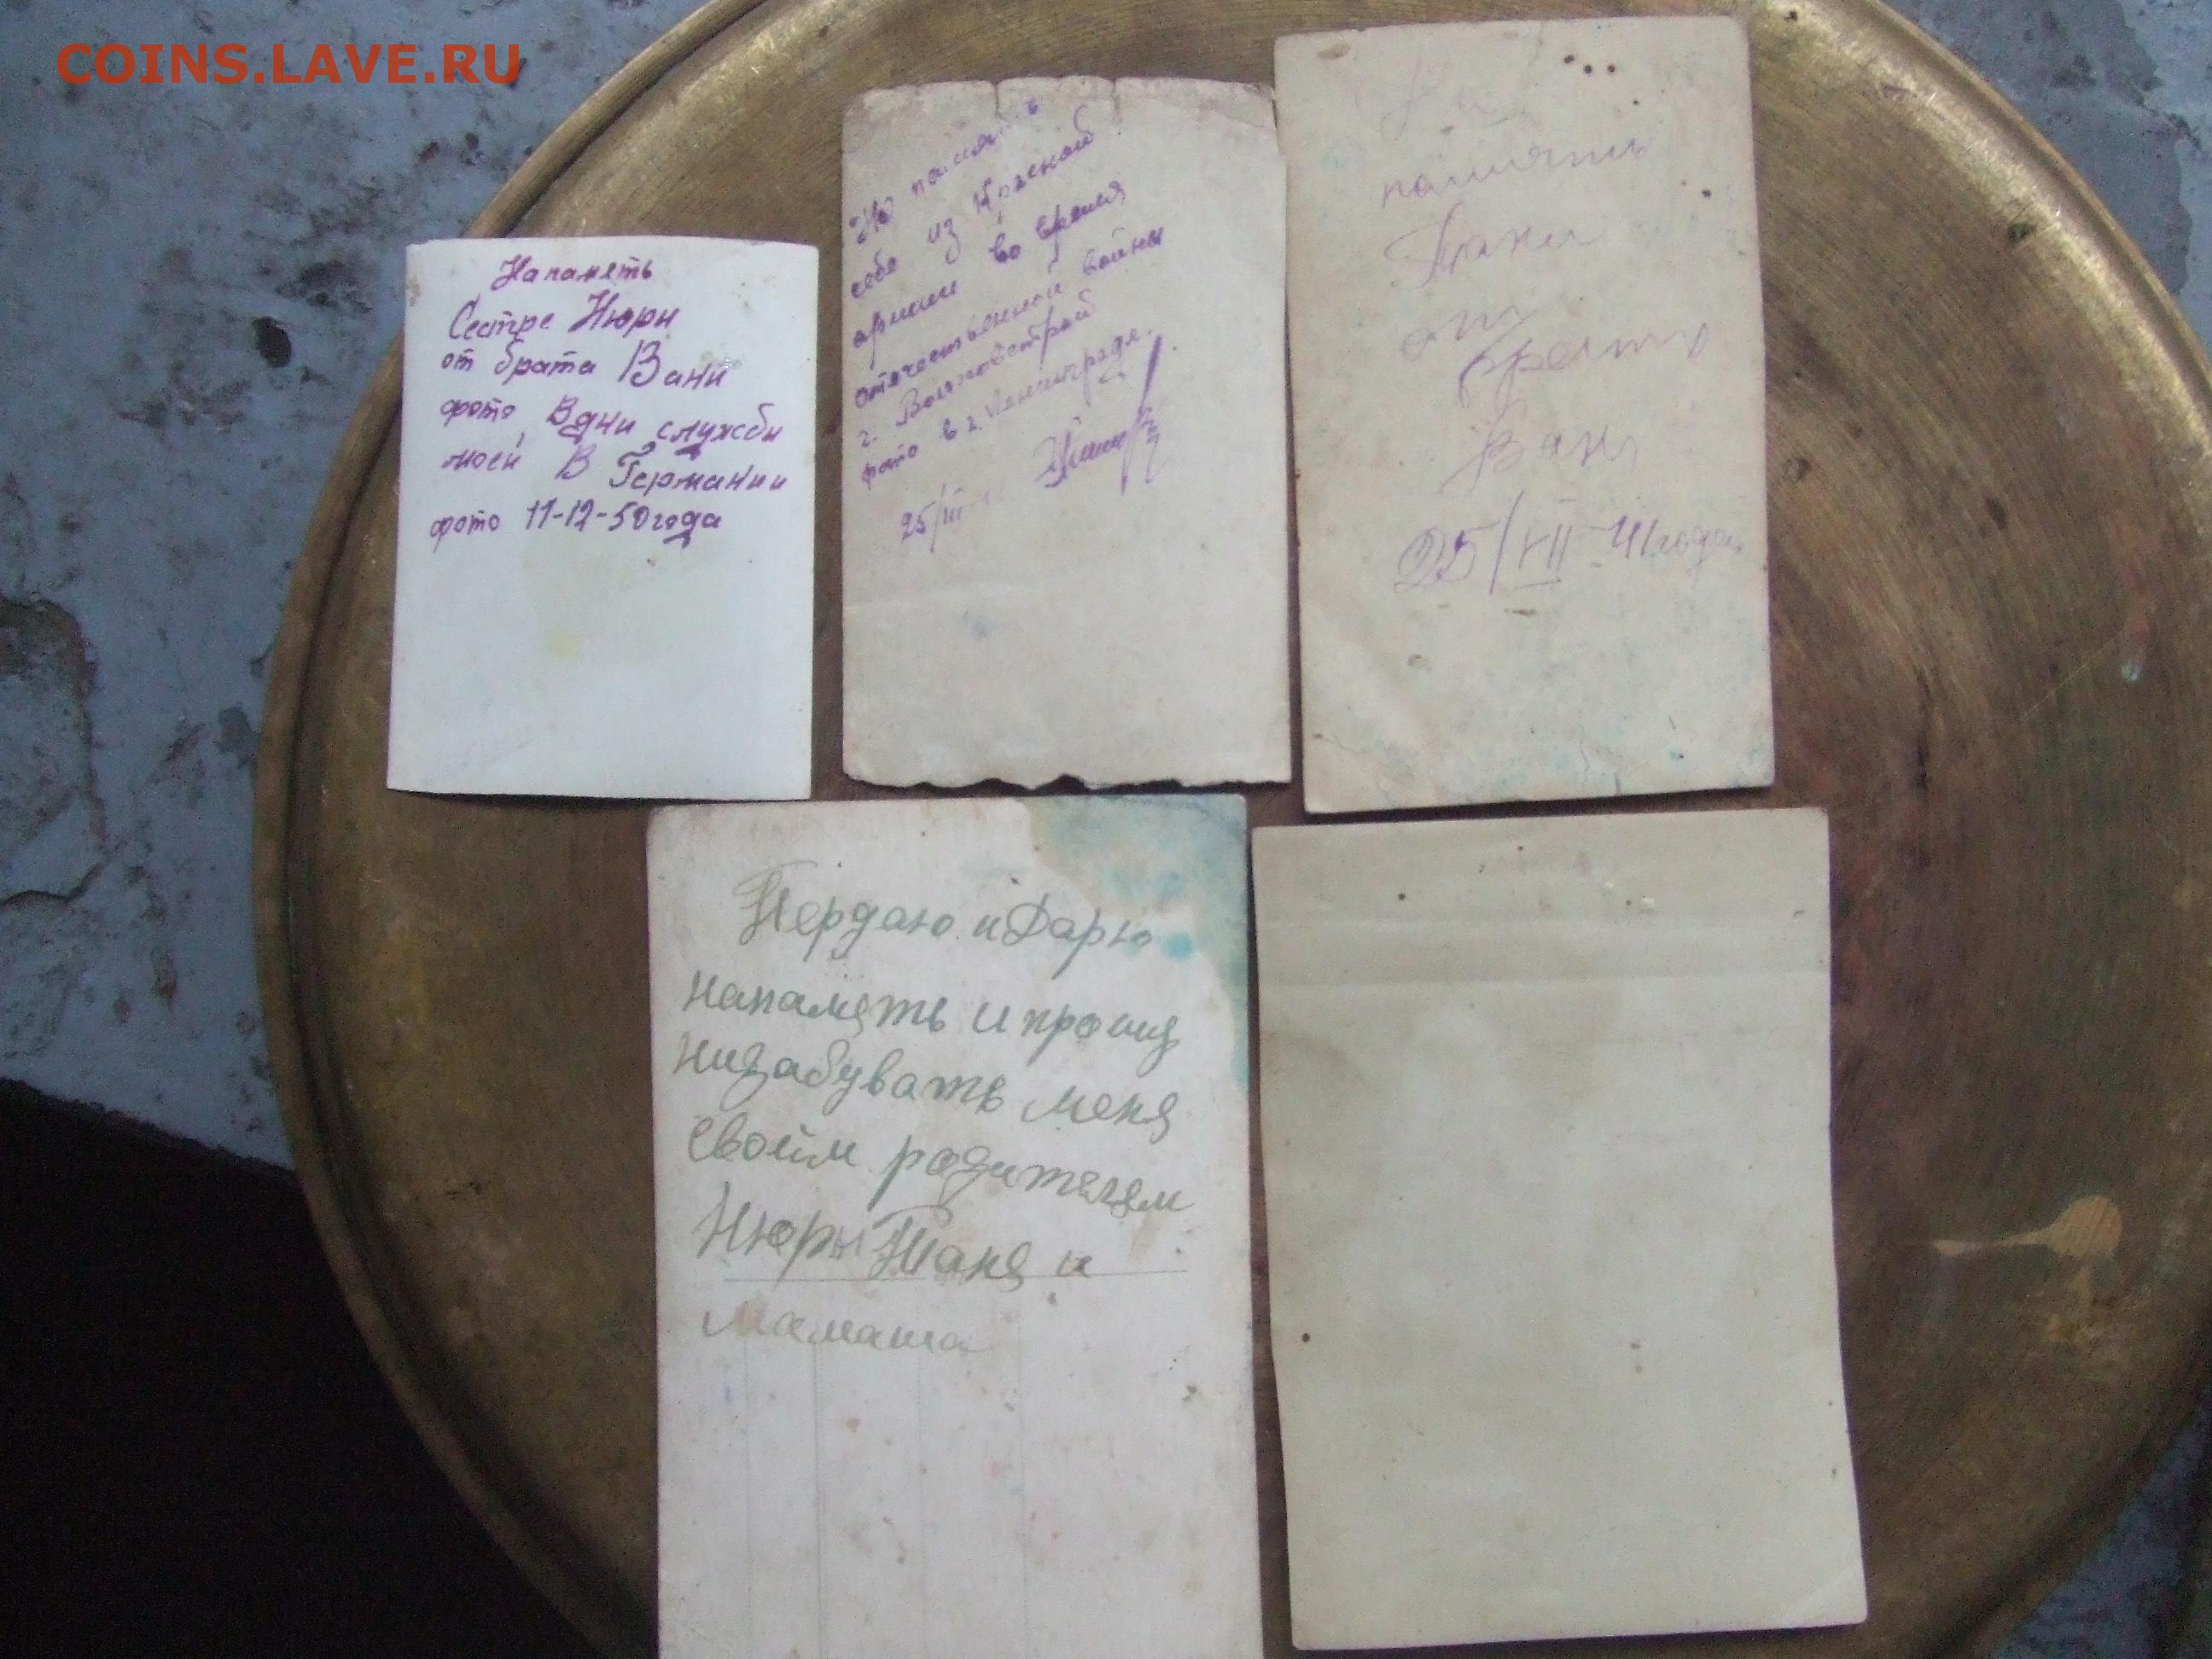 COINS.LAVE.RU
Напаметь
Сестре Нюри
от брата Вани
фото, В дни службы
моей В Германии
фото 11-12-50 года
На память
себе из Красной
армии во время
отечественной войны
г. Волховстрой
фото в г. Ленинграде.
25/III
На
память
от
брата
Вани
25/VII-41 года.
Пердаю и Дарю
напамять и прошу
низабувать меня
своим родителям
Нюры Таня и
мамаша